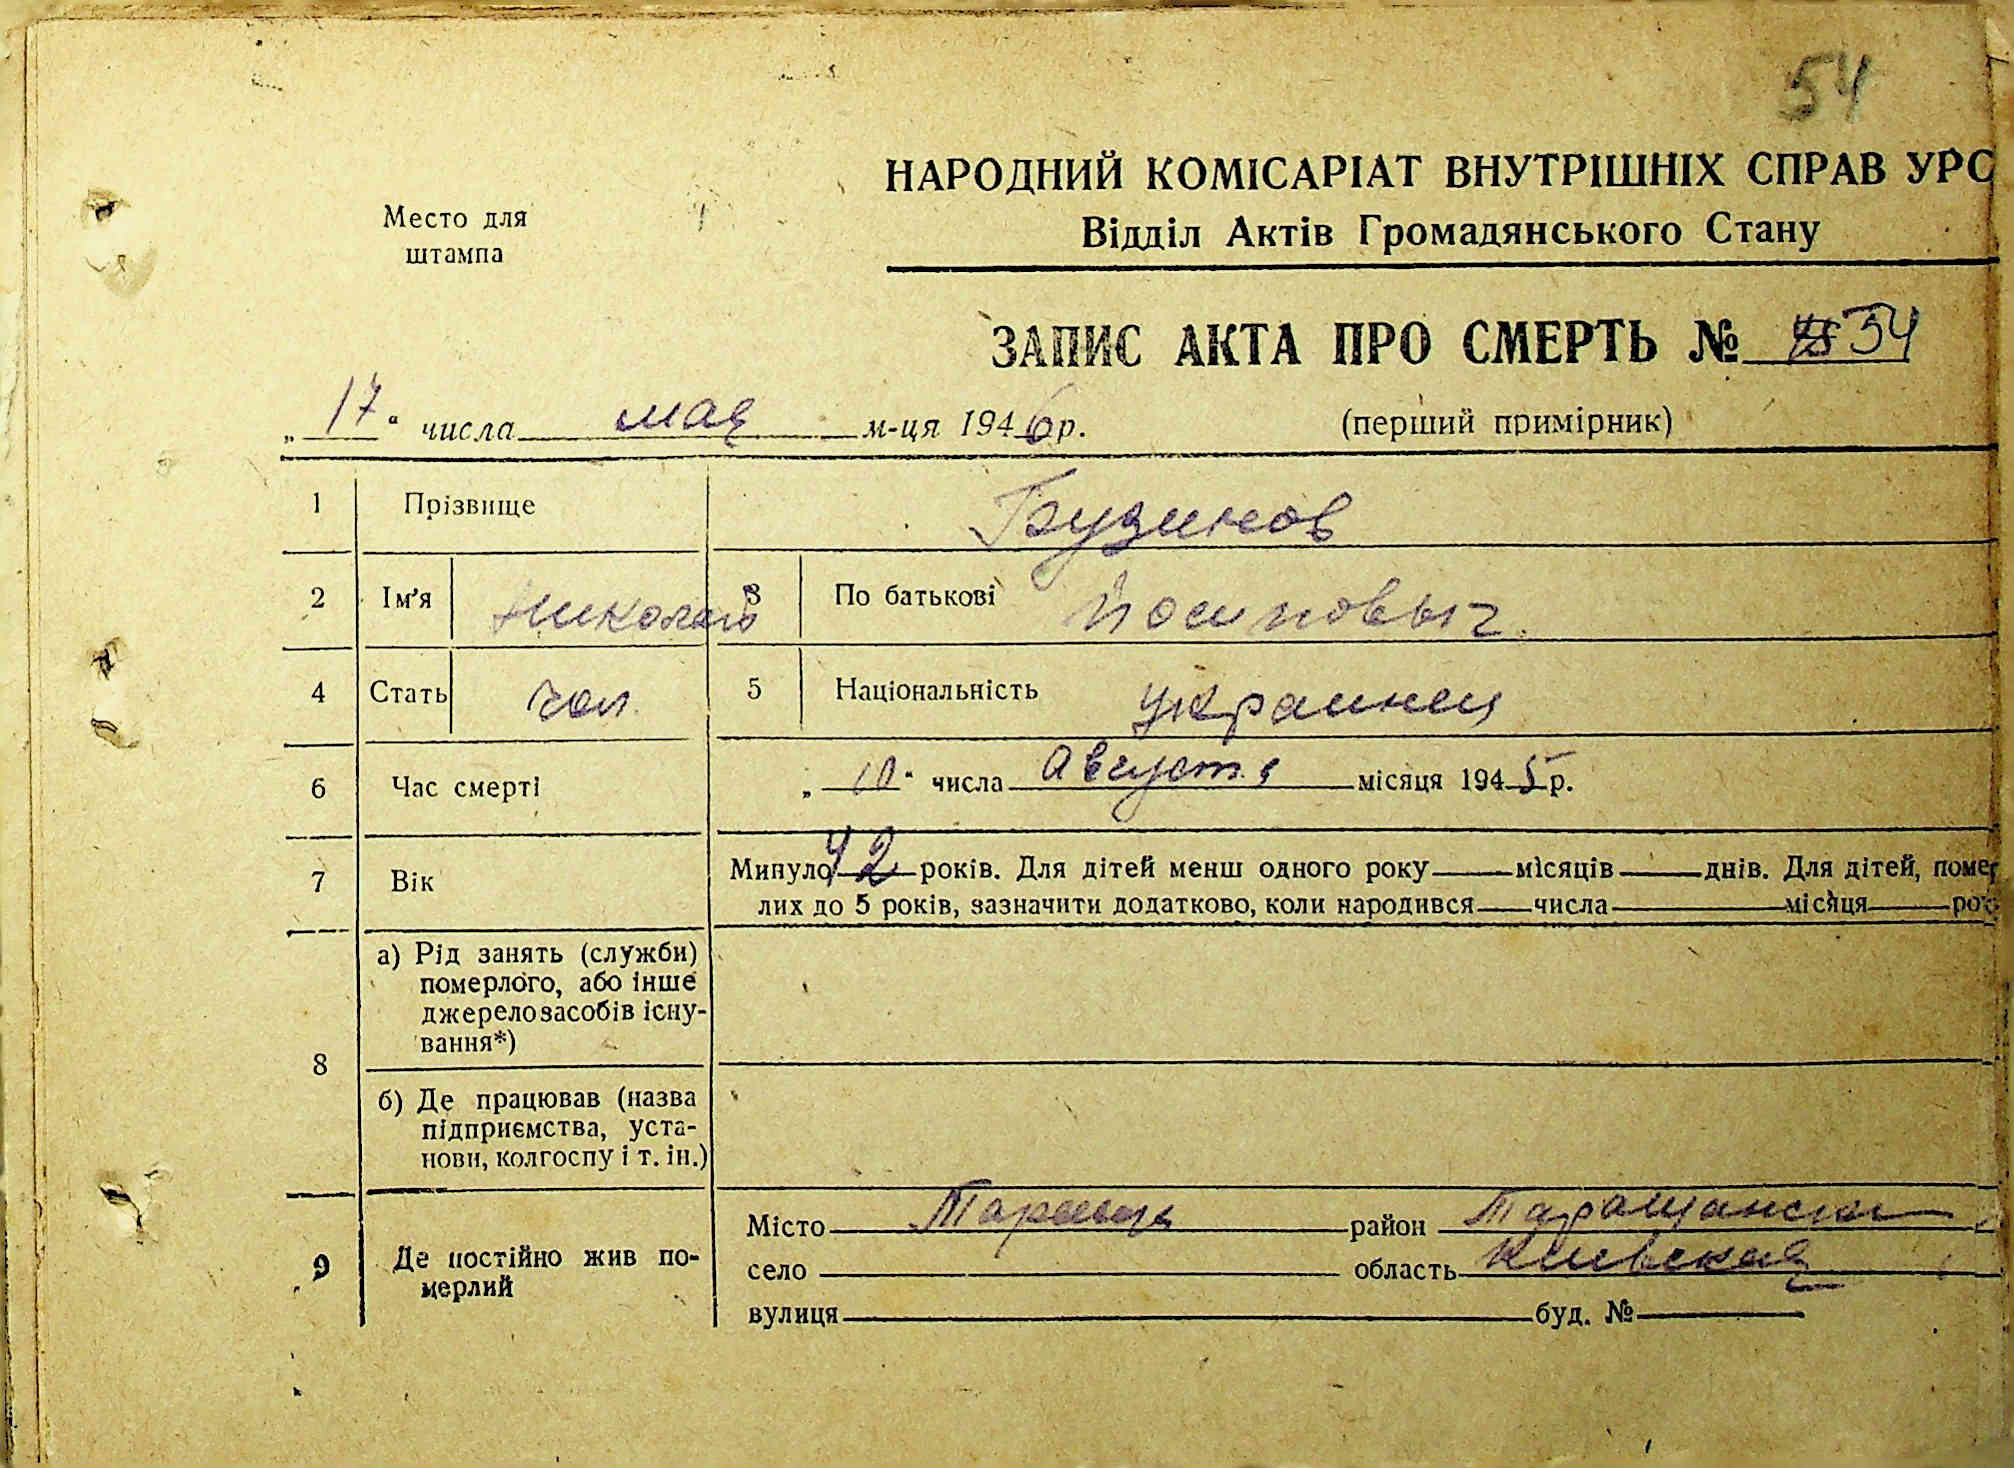 54
НАРОДНИЙ КОМІСАРІАТ ВНУТРІШНІХ СПРАВ УРС
Место для штампа
Відділ Актів Громадянського Стану
ЗАПИС АКТА ПРО СМЕРТЬ № 54
„17“ числа мая м-ця 1946 р. (перший примірник)
1 Прізвище Грузинов
2 Ім'я Николай 3 По батькові Йосиповыч.
4 Стать чол. 5 Національність украинец
6 Час смерті „10“ числа Августа місяця 1945 р.
7 Вік Минуло 42 років. Для дітей менш одного року місяців днів. Для дітей, помер
лих до 5 років, зазначити додатково, коли народився числа місяця рок
8 а) Рід занять (служби)
померлого, або інше
джерело засобів існу-
вання*)
б) Де працював (назва
підприємства, уста-
нови, колгоспу і т. ін.)
9 Де постійно жив по-
мерлий
Місто Тараща район Таращанский
село область Киевская
вулиця буд. №